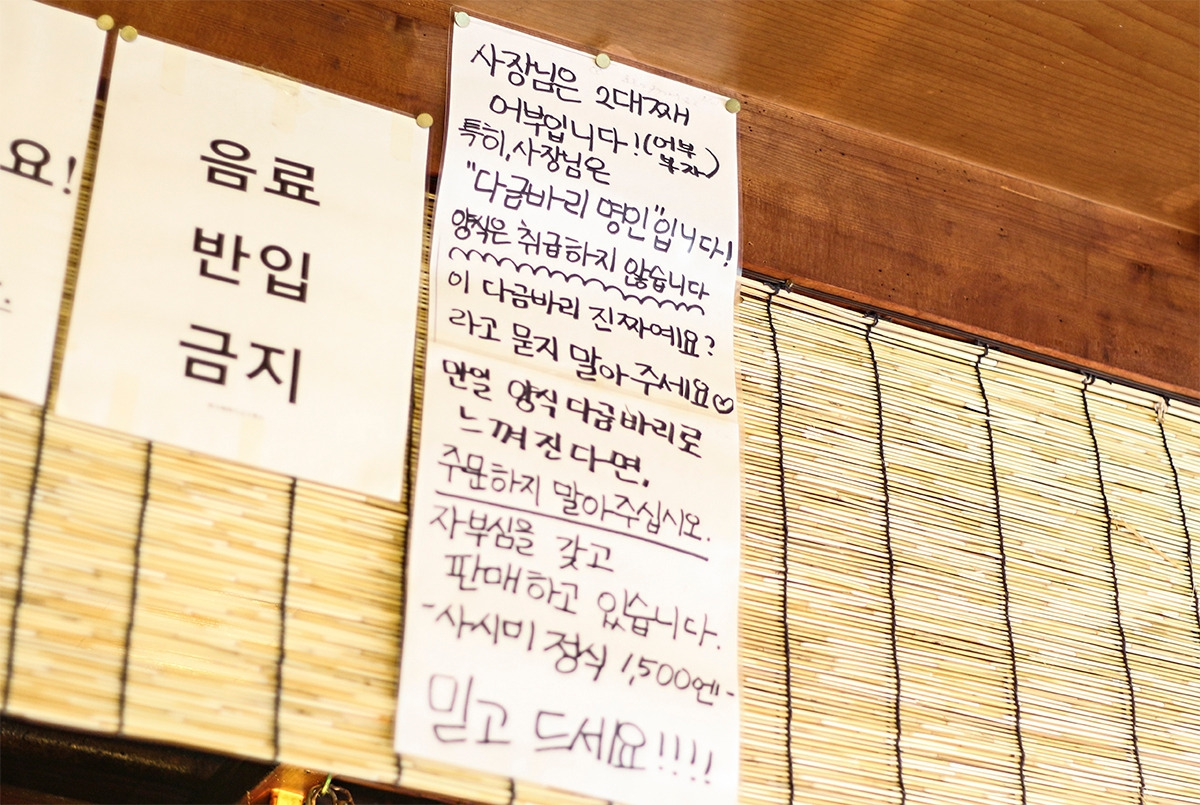 요!
음료
반입
금지
사장님은 2대째
어부입니다!(어부
부자)
특히,사장님은
"다금바리 명인"입니다!
양식은 취급하지 않습니다
이 다금바리 진짜예요?
라고 묻지 말아주세요♡
만일 양식다금바리로
느껴진다면,
주문하지 말아주십시오.
자부심을 갖고
판매하고 있습니다.
-사시미 정식 1,500엔-
믿고 드세요!!!!